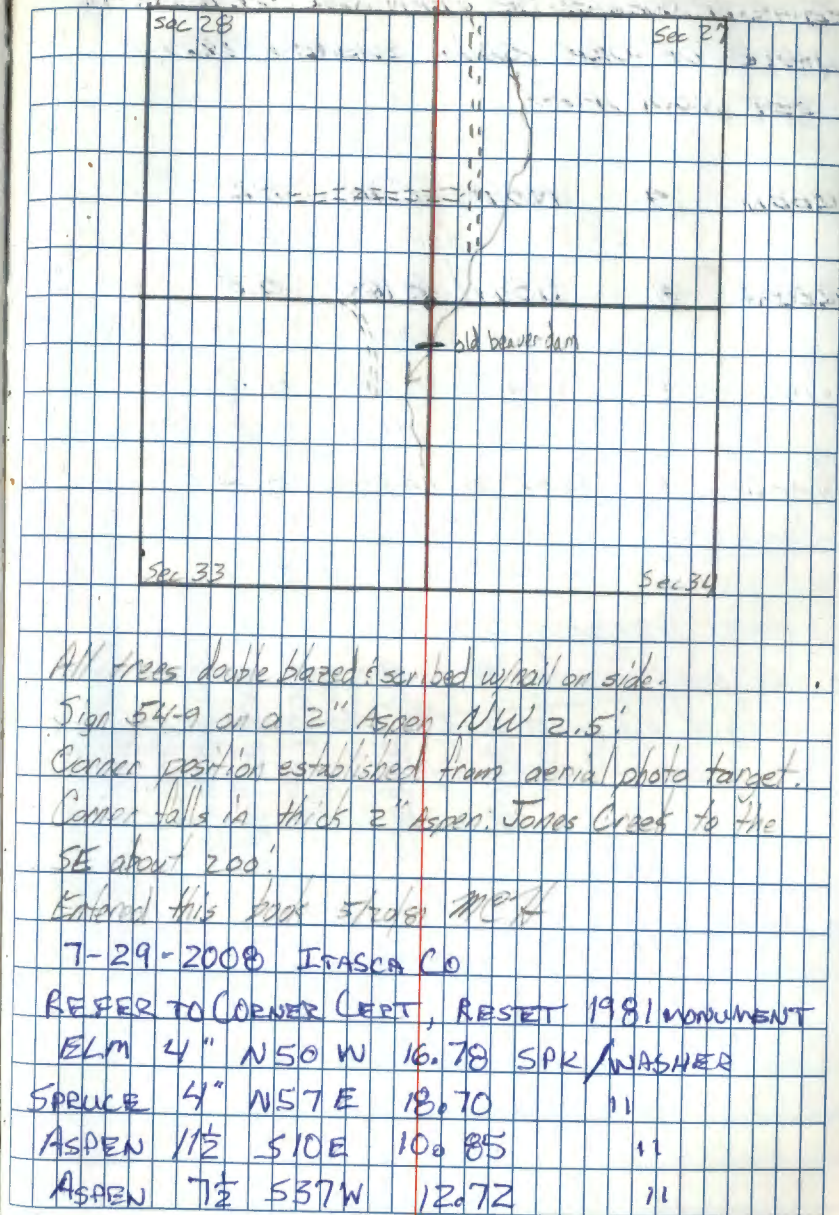 Sec 28 Sec 27
old beaver dam
Sec 33 Sec 34
All trees double blazed & scribed w/nail on side.
Sign 54-9 on a 2" Aspen NW 2.5'.
Corner position established from aerial photo target.
Corner falls in thick 2" Aspen. Jones Creek to the
SE about 200'.
Entered this book 5/20/81
7-29-2008 ITASCA CO
REFER TO CORNER CERT, RESET 1981 MONUMENT
ELM 4" N50W 16.78 SPK/WASHER
SPRUCE 4" N57E 18.70 "
ASPEN 11½ S10E 10.85 "
ASPEN 7½ S37W 12.72 "